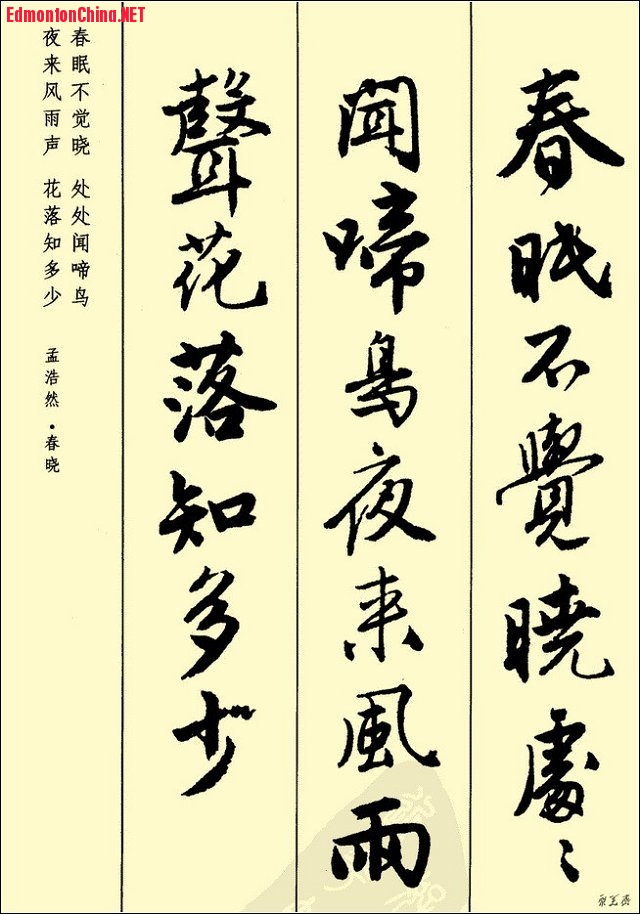 EdmontonChina.NET
春眠不覺曉處〻
聞啼鳥夜来風雨
聲花落知多少
春眠不觉晓 处处闻啼鸟
夜来风雨声 花落知多少
孟浩然·春晓